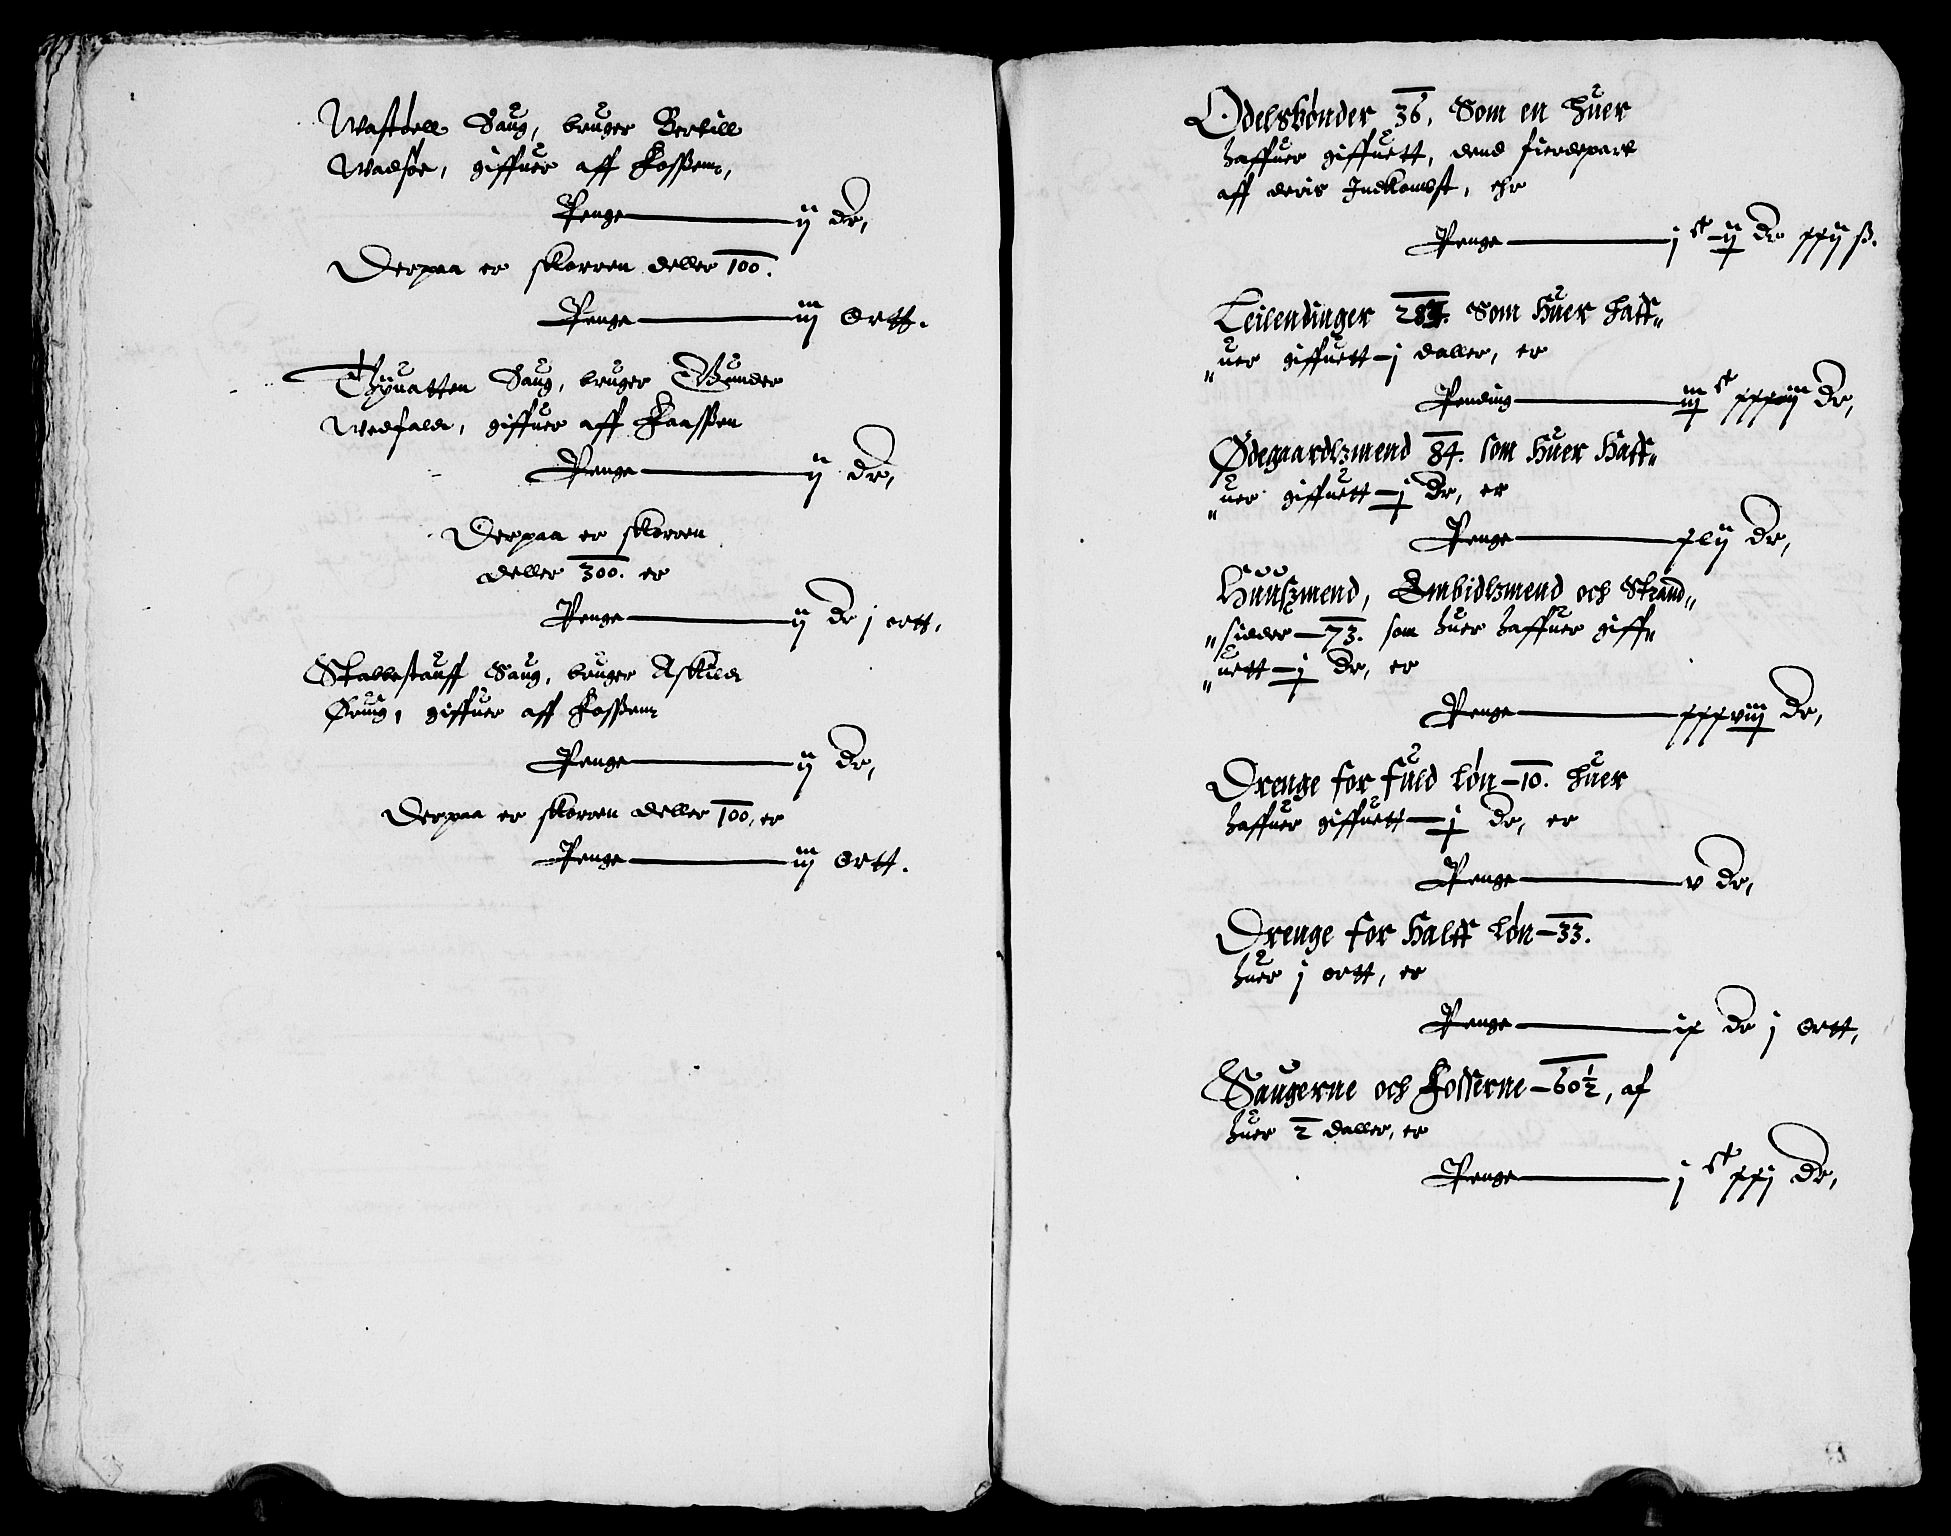 Wastdell Saug, bruger Bertill
Wadsøe, giffuer aff Fossen,
Penge — ij dr,
Derpaa er skorren deller 100.
Penge — iij ortt.
Thÿuatten Saug, bruger Gunder
Wedfald, giffuer aff Faassen
Penge — ij dr,
Derpaa er skorren
deller 300. er
Penge — ij dr j ortt,
Stabbestauff Saug, bruger Askild
Øruig, giffuer aff Fossen
Penge — ij dr,
Derpaa er skorren deller 100, er
Penge — iij ortt.
Odelsbønder 36, Som en huer
haffuer giffuett, dend fierdepart
aff deris Indkombst, ehr
Penge — j ct ij dr xxij ß.
Leilendinger Som Huer haff„
„uer giffuett – j daller, er
Pending — ct dr,
Ødegaardtzmend 84. som Huer Haff„
„uer giffuett – j dr, er
Penge — xlij dr,
Huuszmend, Embidtzmend och Strand„
„sidder – 73. som huer haffuer giff„
„uett – j dr, er
Penge — xxxviij dr,
Drenge for fuld løn – 10. huer
haffuer giffuett — j dr, er
Penge — v dr,
Drenge for Halff løn – 33.
huer j ortt, er
Penge — ix dr j ortt,
Saugerne och Fosserne – 60½, af
huer 2 daller, er
Penge — j ct xxj dr,